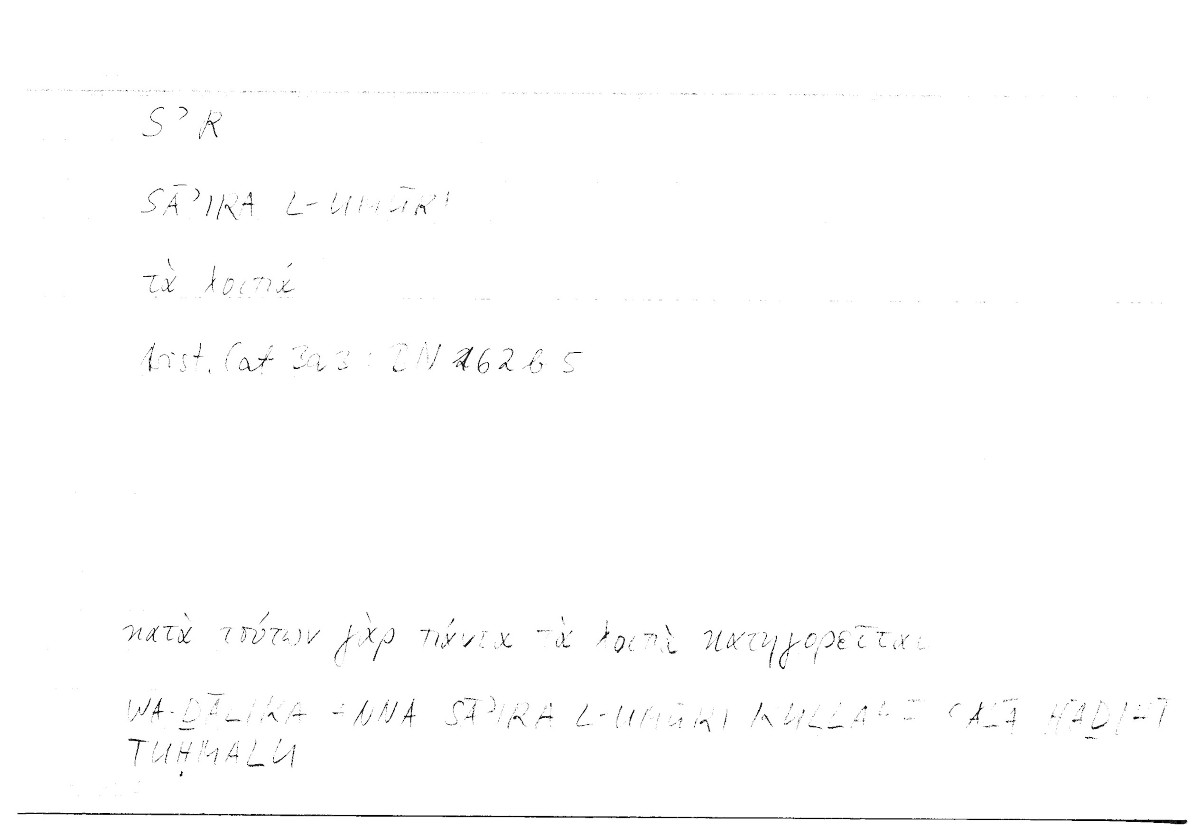 SʾR
SĀʾIRA L-UMŪRI
τὰ λοιπά
Arist. Cat 3a3 : IN 162b5
κατὰ τούτων γὰρ πάντα τὰ λοιπὰ κατηγορεῖται
WA-ḎĀLIKA ANNA SĀʾIRA L-UMŪRI KULLAHĀ ʿALĀ HĀḎIHĪ
TUḤMALU